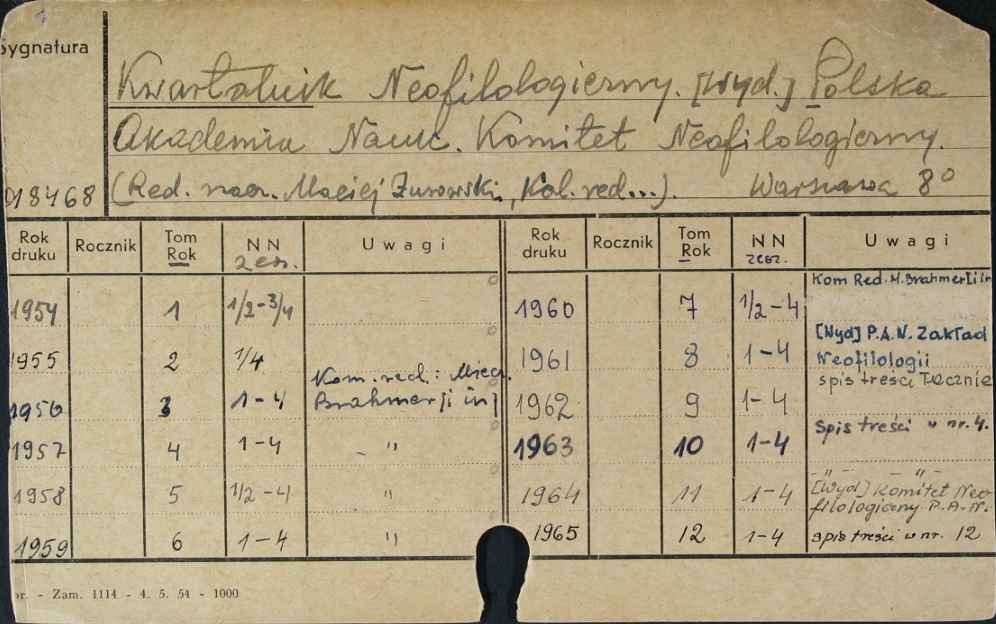 Sygnatura
Kwartalnik Neofilologiczny. [Wyd.] Polska
Akademia Nauk. Komitet Neofilologiczny.
018468 (Red. nacz. Maciej Żurowski, Kol. red...). Warszawa 8°
Rok druku Rocznik Tom Rok NN zesz. Uwagi Rok druku Rocznik Tom Rok NN zesz. Uwagi
Kom Red. M. Brahmer [i in
1954 1 1/2-3/4 1960 7 1/2-4
[Wyd] P.A.N. Zakład
1955 2 1/4 1961 8 1-4 Neofilologii
Kom. red.: Miecz. spis treści łącznie
1956 3 1-4 Brahmer [i in] 1962 9 1-4
spis treści w nr. 4.
1957 4 1-4 - " 1963 10 1-4
- " - - " -
1958 5 1/2-4 " 1964 11 1-4 [Wyd] Komitet Neo-
filologiczny P.A.N.
1959 6 1-4 " 1965 12 1-4 spis treści w nr. 12
pr. - Zam. 1114 - 4. 5. 54 - 1000